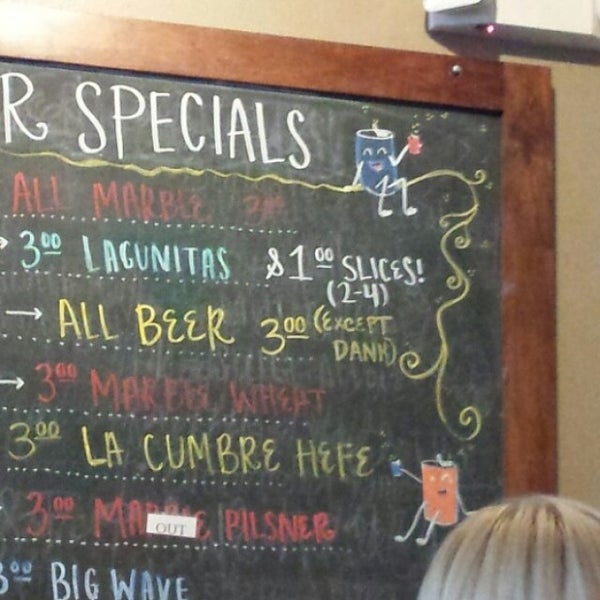 R SPECIALS
ALL MARBLE 3.00
→ 3.00 LAGUNITAS $1.00 SLICES!
(2-4)
→ ALL BEER 3.00 (EXCEPT
DANK)
→ 3.00 MARBLE WHEAT
3.00 LA CUMBRE HEFE
3.00 MARBLE PILSNER
OUT
3.00 BIG WAVE